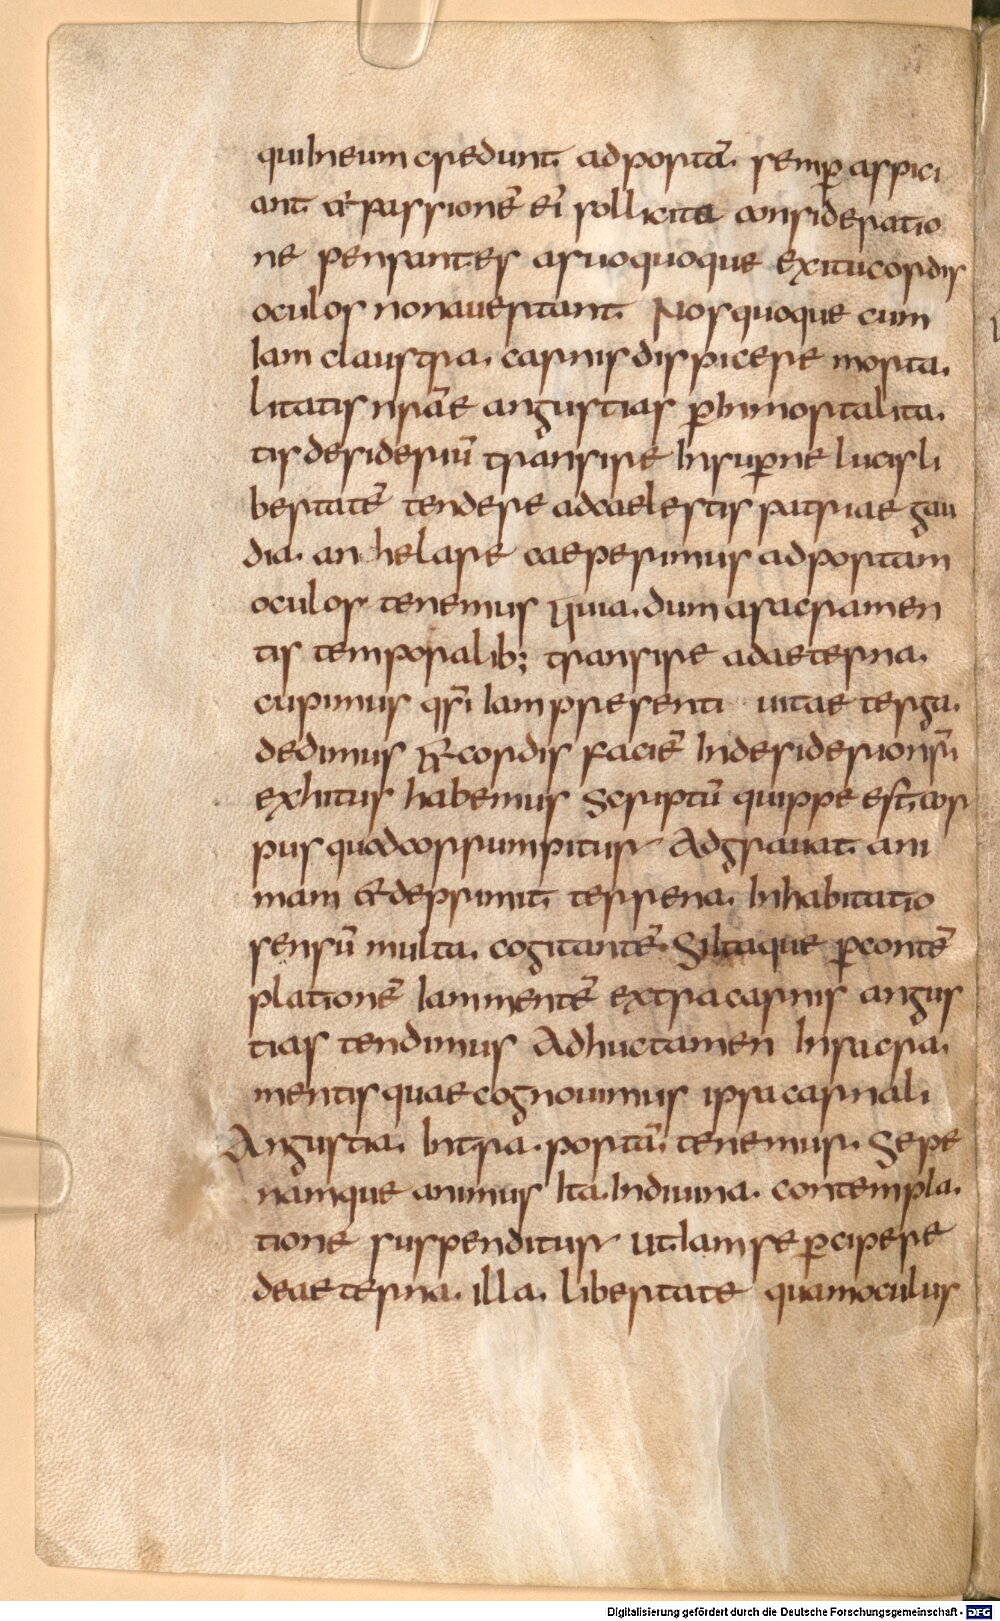 qui in eum credunt ad portā. semp̄ aspici
ant. & passionē ei sollicita consideratio
ne pensantes a suo quoque exitu cordis
oculos non avertant. Nos quoque cum
iam claustra. carnis dispicere morta.
litatis nr̄ae angustias p̄ inmortalita.
tis desideriū transire in sup̄ne lucis li
bertatē tendere ad caelestis patriae gau
dia. anhelare caeperimus ad portam
oculos tenemus quia. dum a sacramen
tis temporalib; transire ad aeterna.
cupimus qs̄i iam presenti vitae terga.
dedimus & cordis faciē in desiderio nr̄i
exhitus habemus Scriptū quippe est. cor
pus quod corrumpitur Adgravat. ani
mam & deprimit. terrena. inhabitatio
sensū multa. cogitantē. Si itaque p̄ contē
plationē iam mentē extra carnis angus
tias tendimus Adhuc tamen in sacra.
mentis quae cognovimus ipsa carnali
Angustia. intra. portā tenemur. Sepe
namque animus ita. in divina. contempla.
tione suspenditur ut. iam se p̄cipere
de aeterna. illa. libertate quam oculus
Digitalisierung gefördert durch die Deutsche Forschungsgemeinschaft - DFG